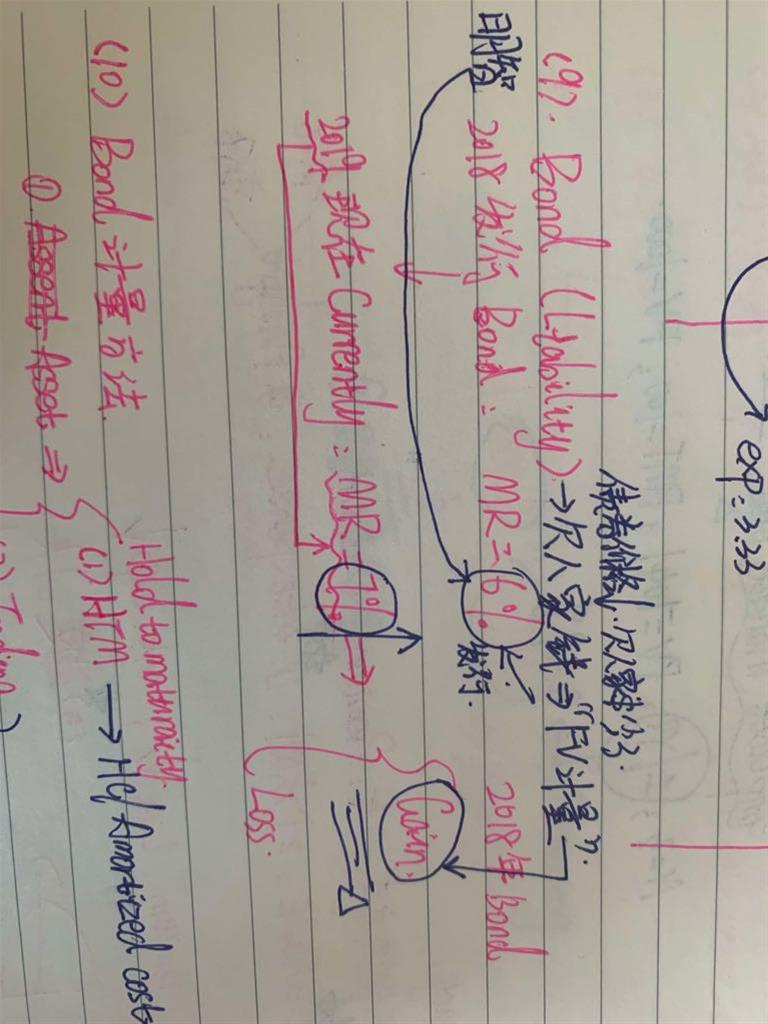 exp: 3.33
债券价格↓.欠人家钱少了.
(9). Bond (Liability) → 欠人家钱 ⇒ "FV计量".
明智 2018 发行 Bond: MR=6% 发行. 2018年 Bond
Gain.
2019 现在 Currently: MR=7% ⇒
Loss.
(10) Bond 计量方法.
Hold to maturity.
① Asset ⇒ (1) HTM → HC/Amortized costs
(2) Trading